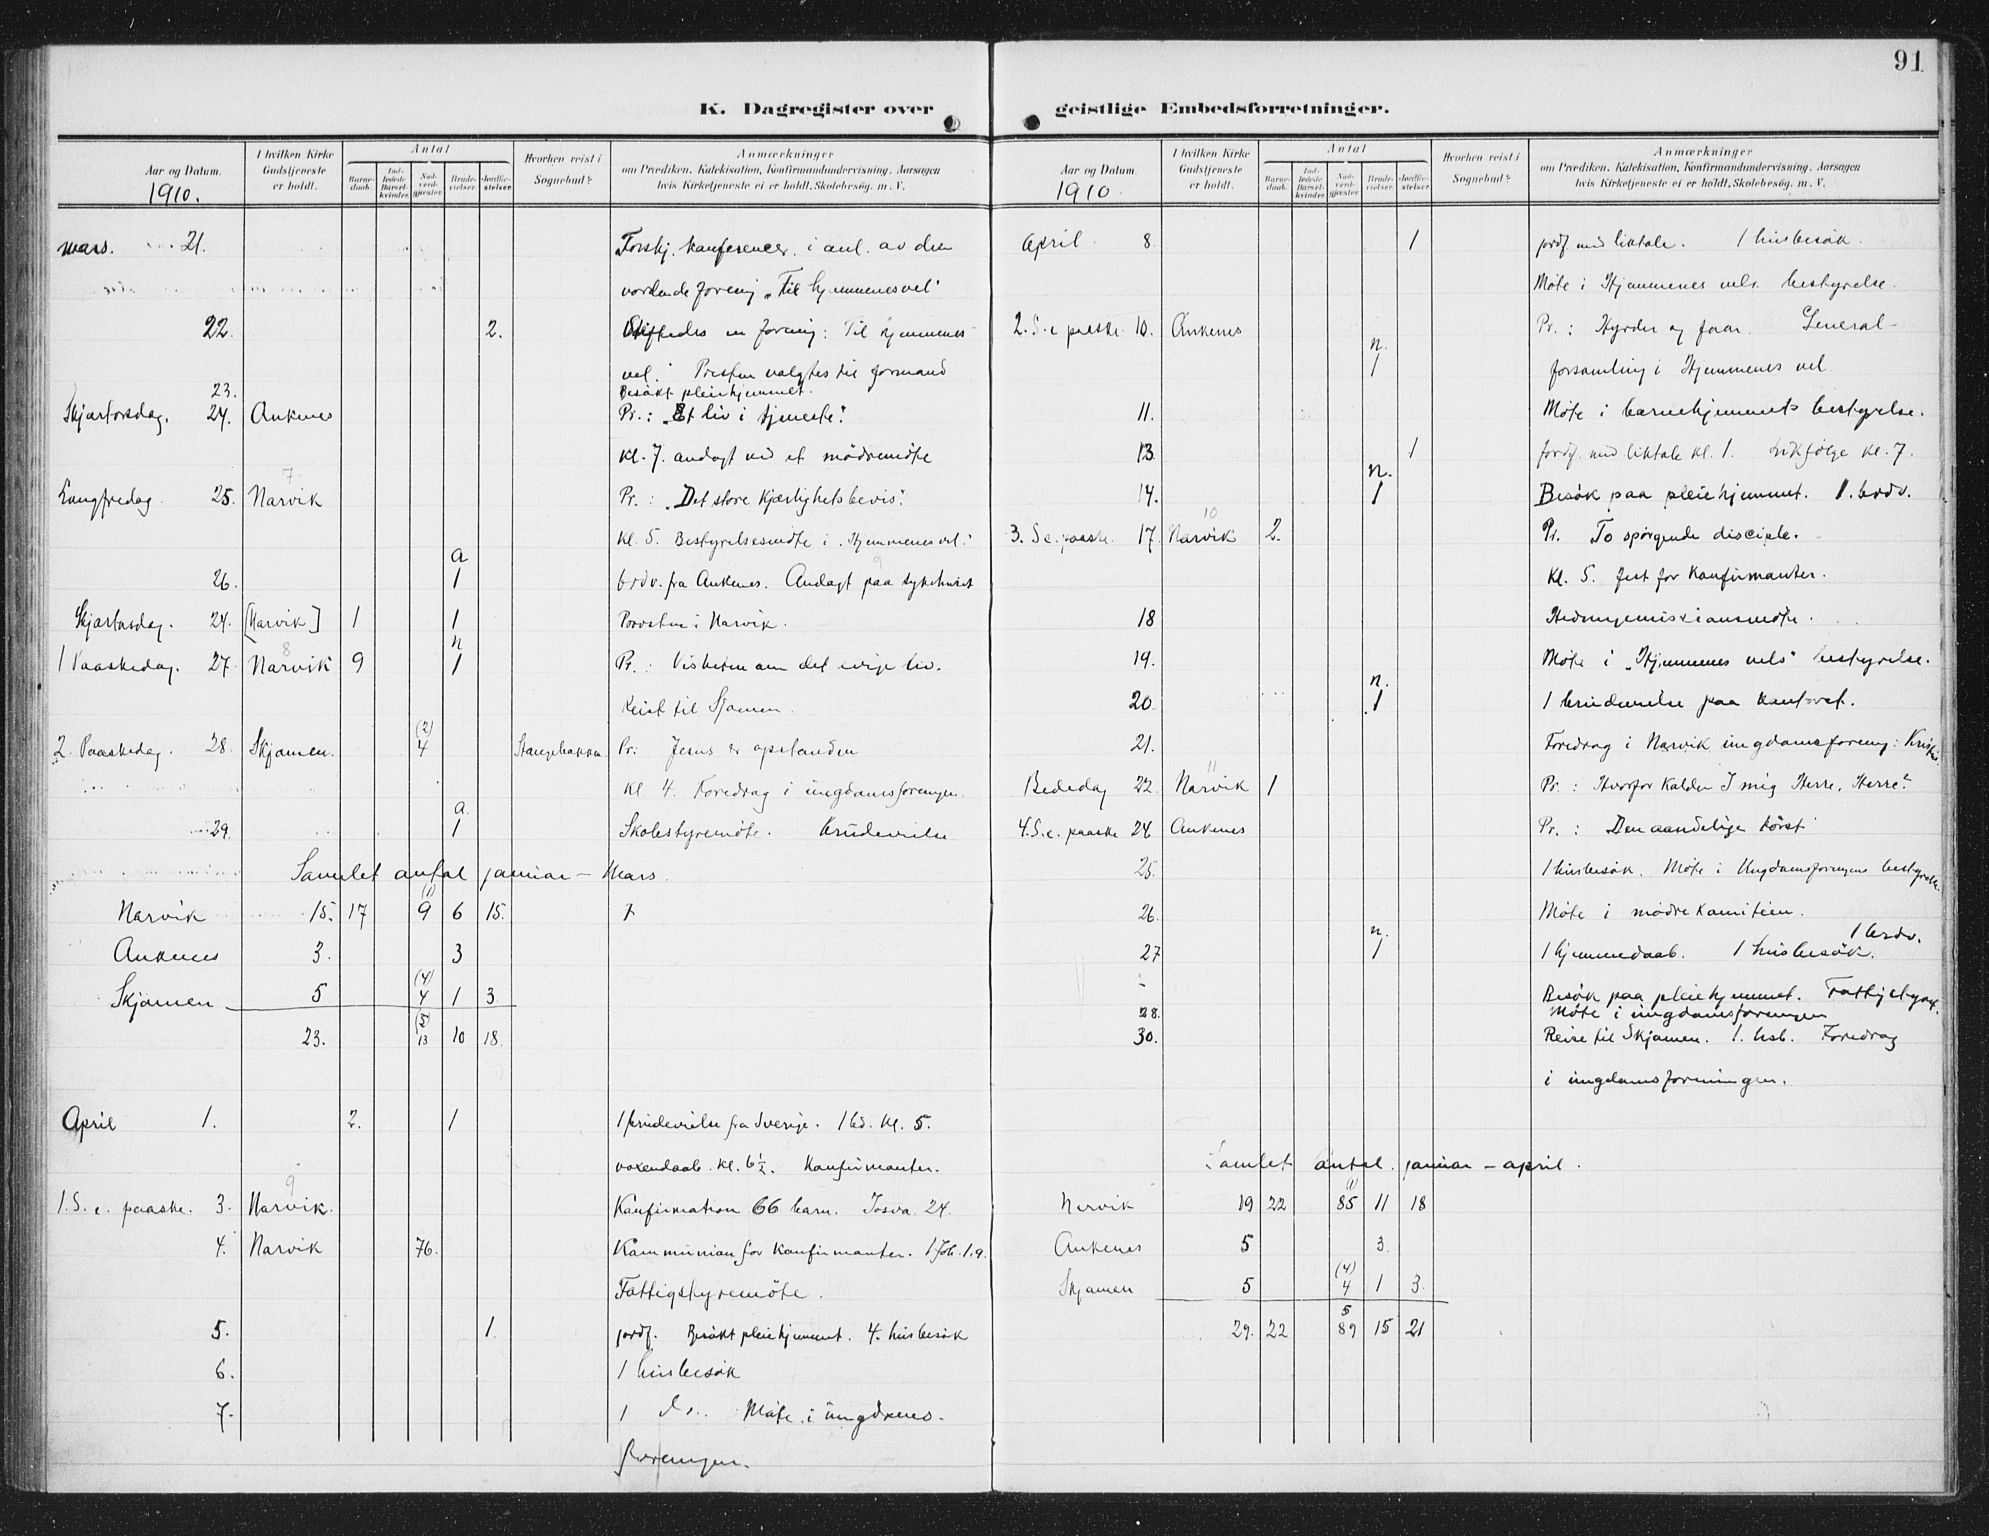 91
K. Dagregister over geistlige Embedsforretninger.
Aar og Datum. 1910.
I hvilken Kirke Gudstjeneste er holdt.
Antal
Barnedaab.
Indledede Barselkvinder.
Nadverdgjæster.
Brudevielser.
Jordfæstelser.
Hvorhen reist i Sognebud?
Anmærkninger
om Prædiken, Katekisation, Konfirmandundervisning. Aarsagen
hvis Kirketjeneste ei er holdt, Skolebesøg, m. V.
mars. 21. Forskj. konferencer i anl. av den
vordende forening „Til hjemmenes vel"
22. 2. Stiftedes en forening: Til hjemmenes
vel." Presten valgtes til formand
23. Besøkt pleiehjemmet.
Skjærtorsdag. 24. Ankenes Pr.: „Et liv i tjeneste".
kl. 7. andagt ved et mödremöte
7
Langfredag. 25. Narvik Pr.: „Det store kjærlighetsbevis".
kl. 5. Bestyrelsesmöte i „Hjemmenes vel."
a
26. 1 brdv. fra Ankenes. Andagt paa sykehuset
Skjærtorsdag. 24. [Narvik] 1 1 Provsten i Narvik.
8 n
1 Paaskedag. 27 Narvik 9 1 Pr.: Visheten om det evige liv.
Reist til Skjomen.
(2)
2. Paaskedag. 28. Skjomen. 4 Pr: Jesus er opstanden
kl. 4. Foredrag i ungdomsforeningen.
a.
29. 1 Skolestyremöte. brudevielse
Samlet antal januar – Mars.
(1)
Narvik 15. 17 9 6 15. 7
Ankenes 3. 3
(4)
Skjomen 5 4 1 3
(5)
23. 13 10 18.
April 1. 2. 1 1 brudevielse fra Sverige. 1 bd. kl. 5.
voxendaab. kl. 6½. Konfirmanter.
9
1. S. e. paaske. 3. Narvik. Konfirmation 66 barn. Josva 24.
4. Narvik 76. Kommunion for konfirmanter. 1 Joh. 1.9.
Fattigstyremöte.
5. 1. jordf. Besökt pleiehjemmet. 4. husbesök
6. 1 husbesök
7. 1 do. Möte i ungdoms-
foreningen.
Aar og Datum. 1910
I hvilken Kirke Gudstjeneste er holdt.
Antal
Barnedaab.
Indledede Barselkvinder.
Nadverdgjæster.
Brudevielser.
Jordfæstelser.
Hvorhen reist i Sognebud?
Anmærkninger
om Prædiken, Katekisation, Konfirmandundervisning. Aarsagen
hvis Kirketjeneste ei er holdt, Skolebesøg, m. V.
April 8. 1 jordf. med liktale. 1 husbesök.
Möte i Hjemmenes vels bestyrelse.
2. S. e paaske 10. Ankenes Pr.: Hyrder og faar. General-
n.
1 forsamling i Hjemmenes vel
11. Möte i barnehjemmets bestyrelse.
13 1 jordf. med liktale kl. 1. Likfølge kl. 7.
n.
14. 1 Besök paa pleiehjemmet. 1. brdv.
10
3. S. e. paaske. 17. Narvik 2. Pr. To spörgende disciple.
Kl. 5. fest for konfirmanter.
18 Hedningemissionsmöte.
19. Möte i „Hjemmenes vels" bestyrelse.
n.
20. 1 1 brudevielse paa kontoret.
21. Foredrag i Narvik ungdomsforening:
11
Bededag 22. Narvik 1 Pr.: Hvorfor kalder I mig Herre, Herre?
4. S. e. paaske 24 Ankenes Pr.: Den aandelige törst
25. 1 husbesök. Möte i Ungdomsforeningens bestyrelse.
26. Möte i mödrekomiteen.
n. 1 brdv.
27 1 1 hjemmedaab. 1 husbesök.
Besök paa pleiehjemmet. Fattigstyret.
28. Möte i ungdomsforeningen
30. Reise til Skjomen. 1. hsb. Foredrag
i ungdomsforeningen.
Samlet antal januar – april.
(1)
Narvik 19 22 85 11 18
Ankenes 5 3.
(4)
Skjomen 5 4 1 3.
5
29. 22 89 15 21